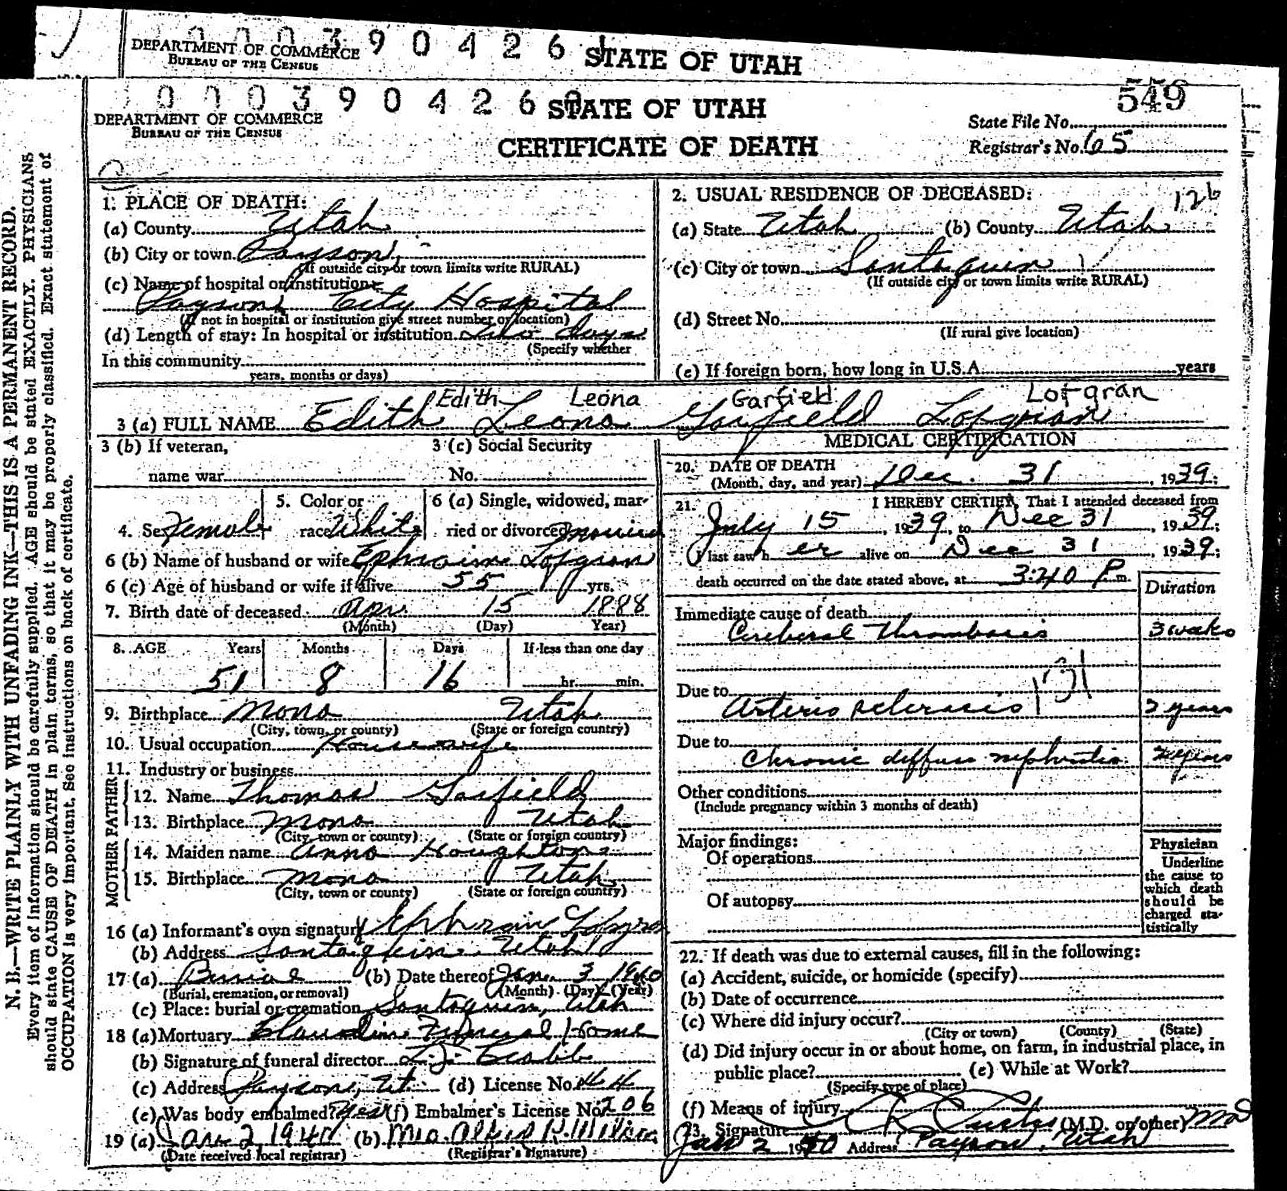 DEPARTMENT OF COMMERCE
BUREAU OF THE CENSUS
000390426
STATE OF UTAH
DEPARTMENT OF COMMERCE
BUREAU OF THE CENSUS
000390426
STATE OF UTAH
CERTIFICATE OF DEATH
549
State File No.
Registrar's No. 65
N. B.—WRITE PLAINLY WITH UNFADING INK—THIS IS A PERMANENT RECORD.
Every item of information should be carefully supplied. AGE should be stated EXACTLY. PHYSICIANS
should state CAUSE OF DEATH in plain terms, so that it may be properly classified. Exact statement of
OCCUPATION is very important. See instructions on back of certificate.
1. PLACE OF DEATH:
(a) County Utah
(b) City or town Payson
(If outside city or town limits write RURAL)
(c) Name of hospital or institution:
Payson City Hospital
(If not in hospital or institution give street number or location)
(d) Length of stay: In hospital or institution two days
(Specify whether
In this community
years, months or days)
2. USUAL RESIDENCE OF DECEASED:
126
(a) State Utah (b) County Utah
(c) City or town Santaquin
(If outside city or town limits write RURAL)
(d) Street No.
(If rural give location)
(e) If foreign born, how long in U.S.A. years
Edith Leona Garfield Lofgran
3 (a) FULL NAME Edith Leona Garfield Lofgran
3 (b) If veteran,
name war
3 (c) Social Security
No.
4. Sex Female
5. Color or
race White
6 (a) Single, widowed, mar-
ried or divorced married
6 (b) Name of husband or wife Ephraim Lofgran
6 (c) Age of husband or wife if alive 55 yrs.
7. Birth date of deceased Apr. 15 1888
(Month) (Day) Year)
8. AGE Years Months Days If less than one day
51 8 16 hr. min.
9. Birthplace Mona Utah
(City, town, or county) (State or foreign country)
10. Usual occupation Housewife
11. Industry or business
FATHER
12. Name Thomas Garfield
13. Birthplace Mona Utah
(City, town or county) (State or foreign country)
MOTHER
14. Maiden name Anna Houghton
15. Birthplace Mona Utah
(City, town or county) (State or foreign country)
16 (a) Informant's own signature Ephraim Lofgran
(b) Address Santaquin Utah
17 (a) Burial (b) Date thereof Jan. 3 1940
(Burial, cremation, or removal) (Month) (Day) (Year)
(c) Place: burial or cremation Santaquin, Utah
18 (a) Mortuary Funeral Home
(b) Signature of funeral director
(c) Address Payson, Ut. (d) License No. 44
(e) Was body embalmed? Yes (f) Embalmer's License No. 206
19 (a) Jan 2 1940 (b) Mrs.
(Date received local registrar) (Registrar's signature)
MEDICAL CERTIFICATION
20. DATE OF DEATH
(Month, day, and year) Dec. 31, 1939.
21. I HEREBY CERTIFY, That I attended deceased from
July 15, 1939, to Dec 31, 1939;
I last saw her alive on Dec 31, 1939;
death occurred on the date stated above, at 3:20 P m.
Duration
Immediate cause of death
Cerebral Thrombosis 3 weeks
Due to
Arterio sclerosis 131 2 years
Due to
Chronic diffuse nephritis 2 years
Other conditions
(Include pregnancy within 3 months of death)
Major findings:
Of operations
Of autopsy
Physician
Underline
the cause to
which death
should be
charged sta-
tistically
22. If death was due to external causes, fill in the following:
(a) Accident, suicide, or homicide (specify)
(b) Date of occurrence
(c) Where did injury occur?
(City or town) (County) (State)
(d) Did injury occur in or about home, on farm, in industrial place, in
public place? (e) While at Work?
(Specify type of place)
(f) Means of injury
23. Signature (M.D. or other) MD
Jan 2 1940 Address Payson, Utah